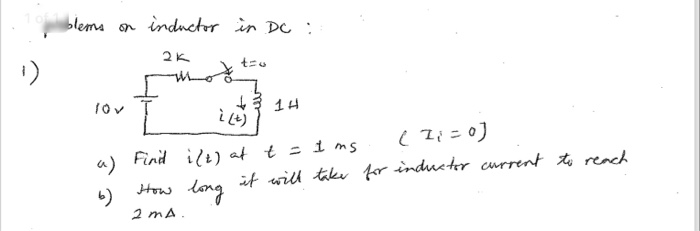 on inductor in DC :
1)
2K
t=0
10v
i(t)
1H
a) Find i(t) at t = 1 ms (Ii = 0)
b) How long it will take for inductor current to reach
2 mA.